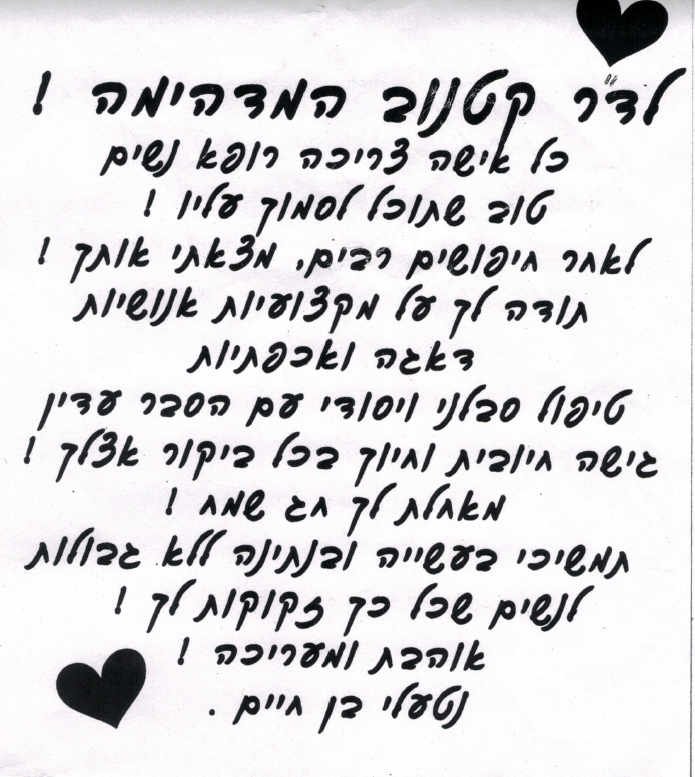 לד"ר קטנוב המדהימה !
כל אישה צריכה רופא נשים
טוב שתוכל לסמוך עליו !
לאחר חיפושים רבים, מצאתי אותך !
תודה לך על מקצועיות אנושיות
דאגה ואכפתיות
טיפול סבלני ויסודי עם הסבר עדין
גישה חיובית וחיוך בכל ביקור אצלך !
מאחלת לך חג שמח !
תמשיכי בעשייה ובנתינה ללא גבולות
לנשים שכל כך זקוקות לך !
אוהבת ומעריכה !
נטעלי בן חיים .